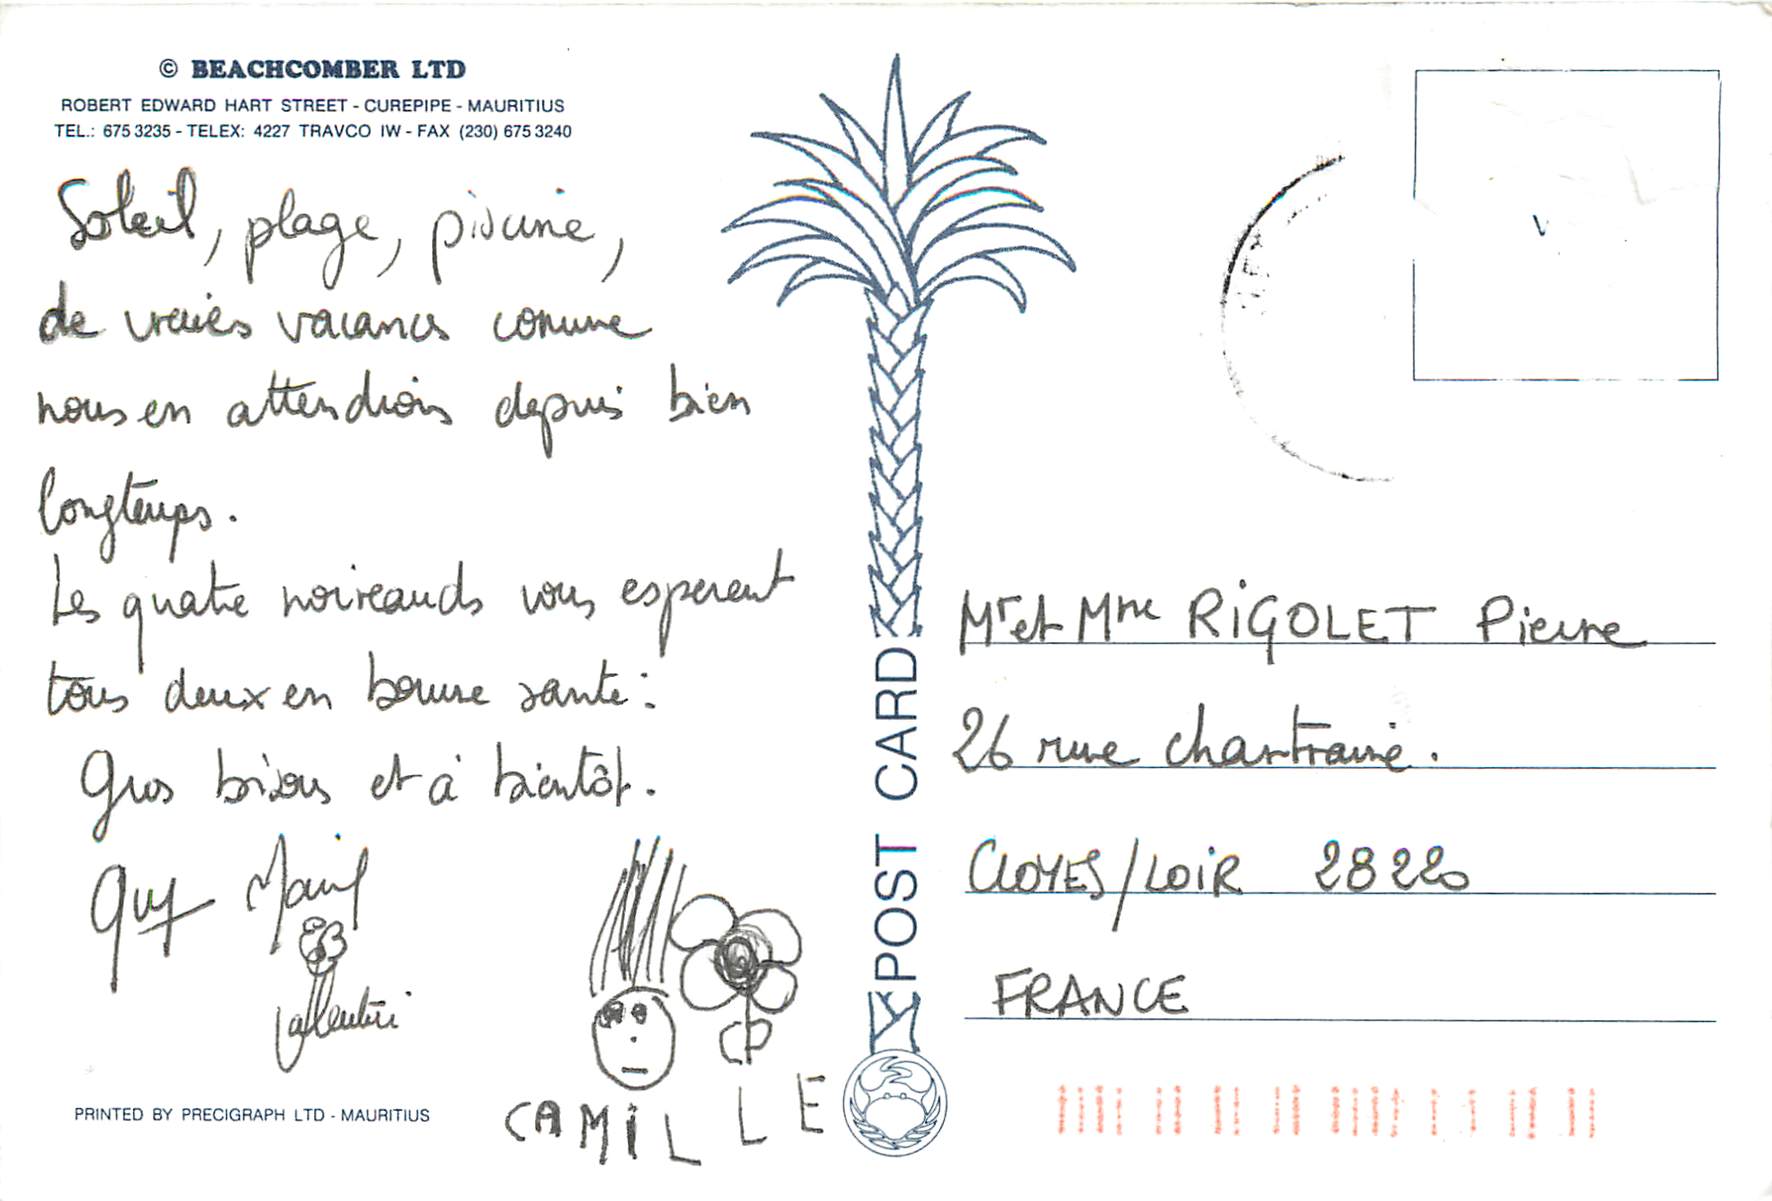 © BEACHCOMBER LTD
ROBERT EDWARD HART STREET - CUREPIPE - MAURITIUS
TEL.: 675 3235 - TELEX: 4227 TRAVCO IW - FAX (230) 675 3240
Soleil, plage, piscine,
de vraies vacances comme
nous en attendions depuis bien
longtemps.
Les quatre noireauds vous esperent
tous deux en bonne santé.
Gros bisous et à bientôt.
Guy
Valentin
CAMILLE
PRINTED BY PRECIGRAPH LTD - MAURITIUS
POST CARD
Mr et Mme RIGOLET Pierre
26 rue chartraine.
CLOYES/LOIR 28220
FRANCE